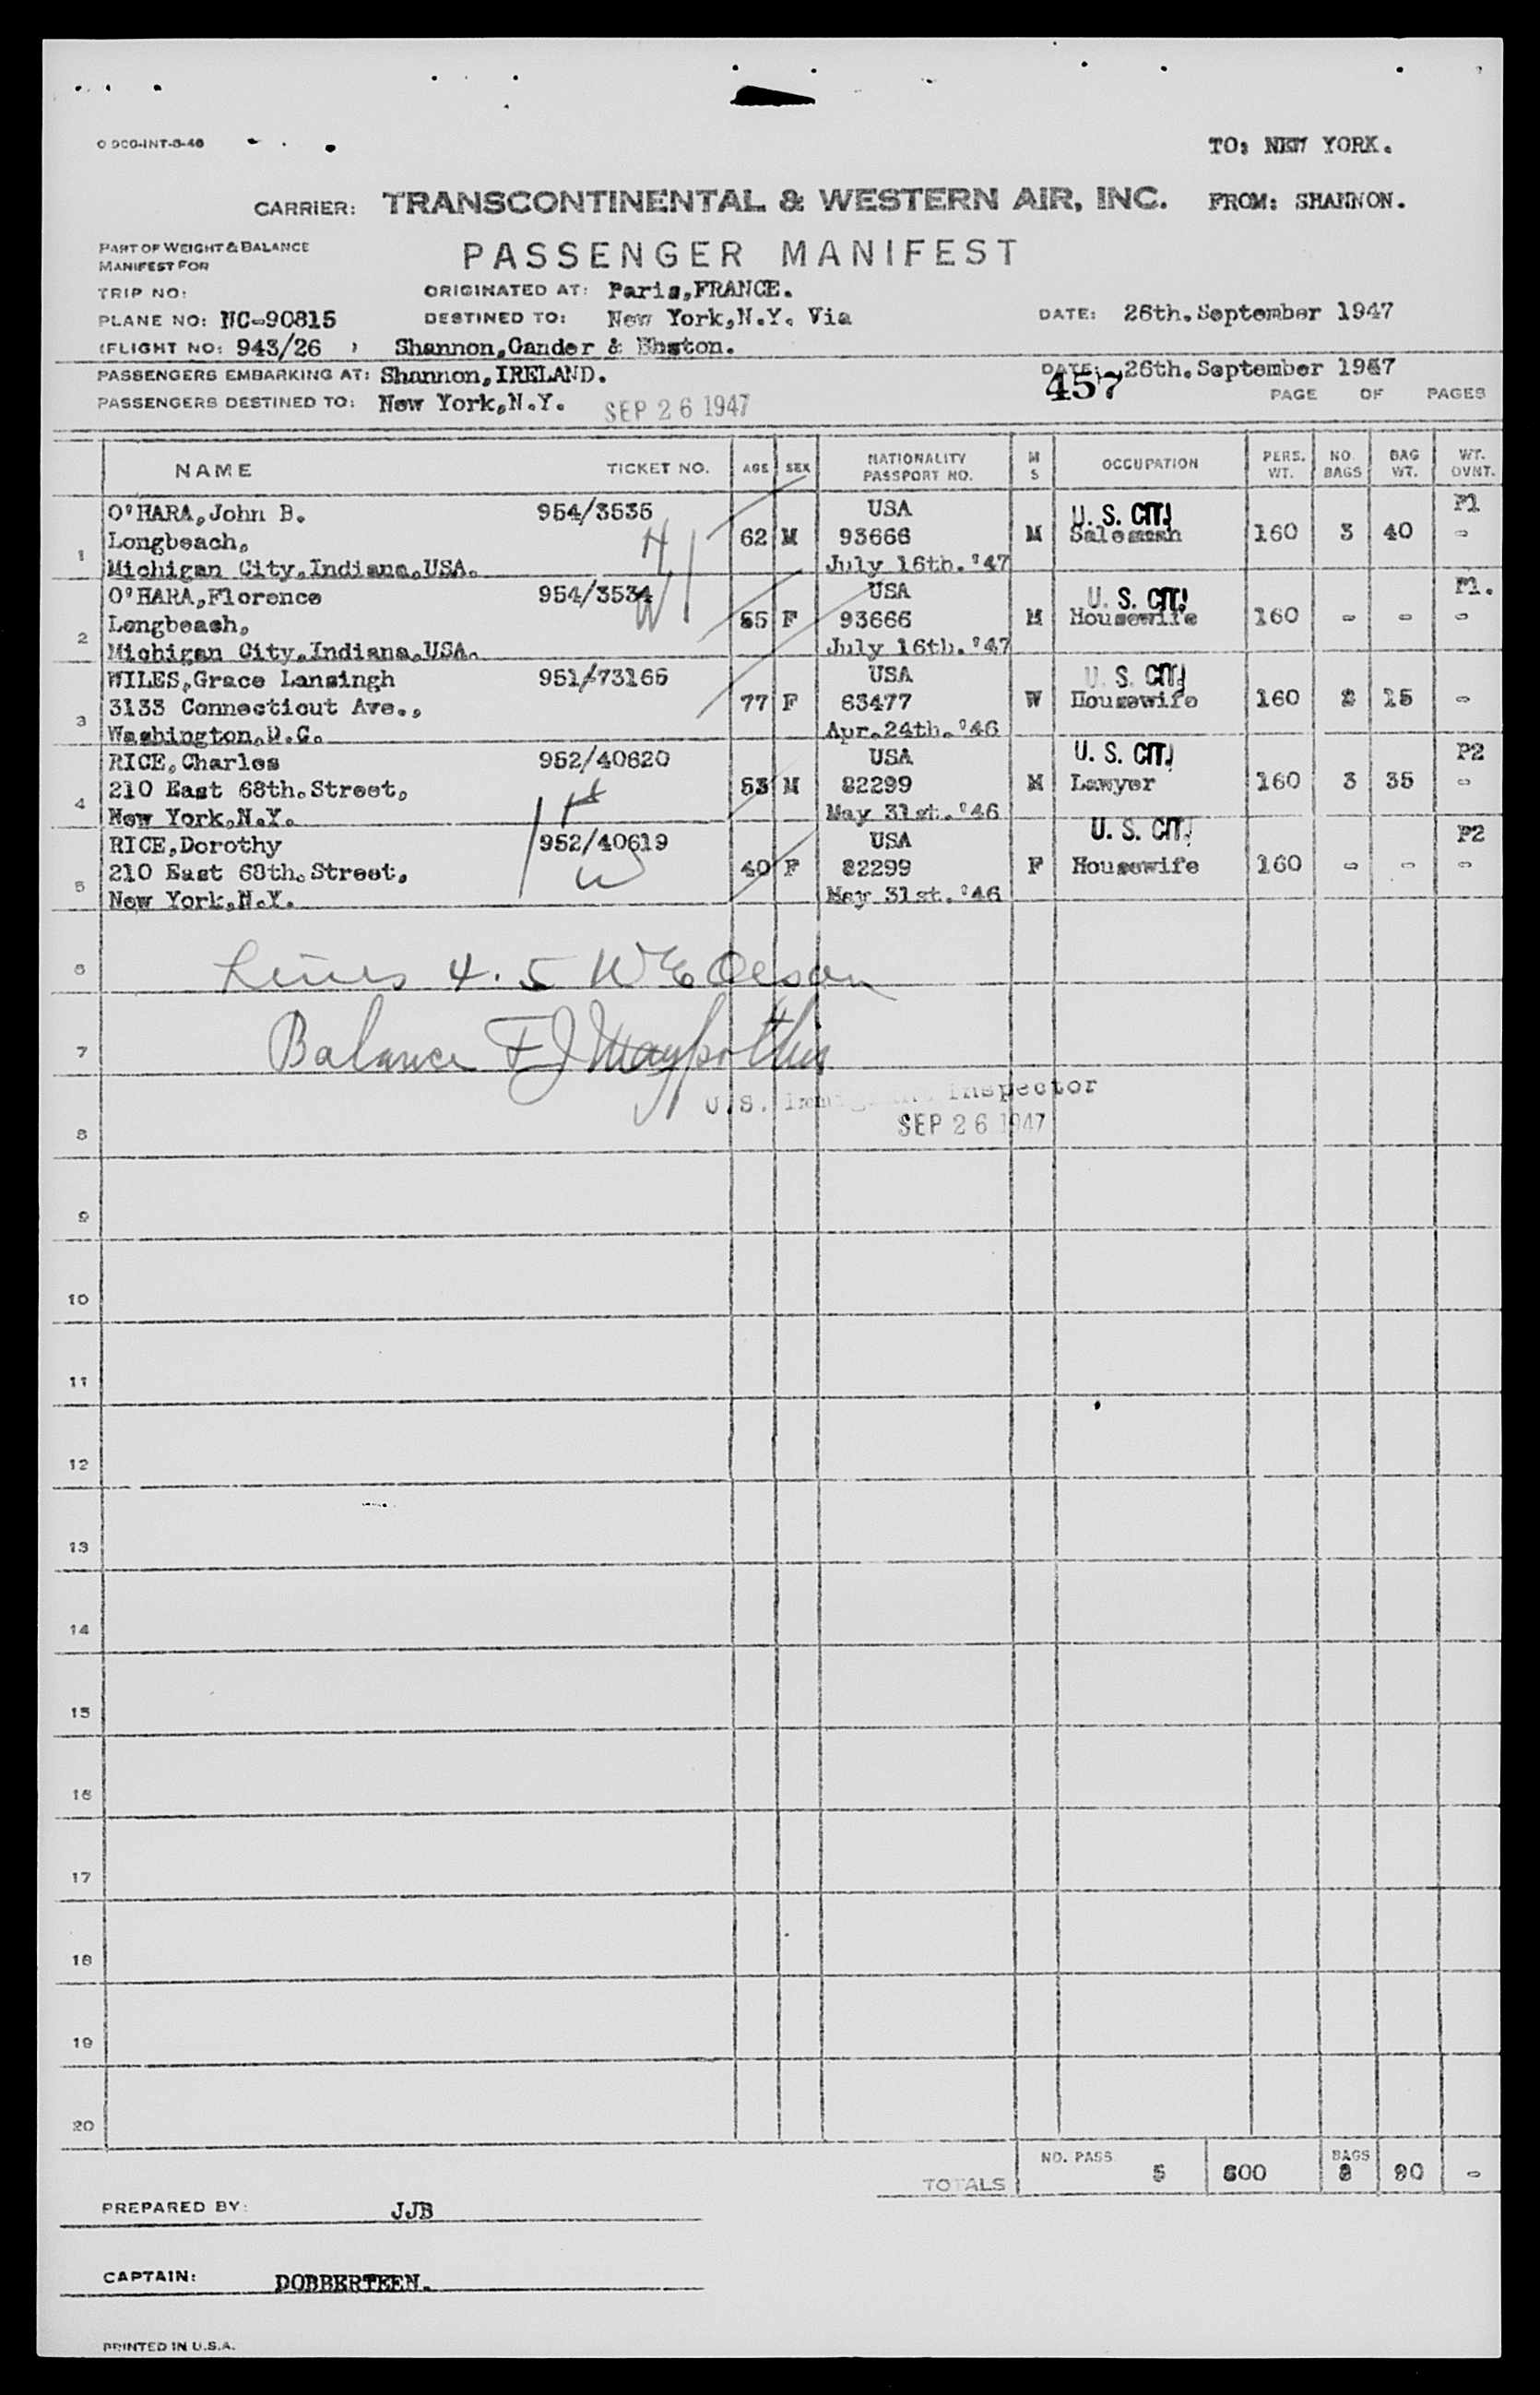 O DCO-INT-8-46
TO: NEW YORK.
CARRIER: TRANSCONTINENTAL & WESTERN AIR, INC. FROM: SHANNON.
PART OF WEIGHT & BALANCE
MANIFEST FOR
PASSENGER MANIFEST
TRIP NO: ORIGINATED AT: Paris,FRANCE.
PLANE NO: NC-90815 DESTINED TO: New York,N.Y. Via DATE: 26th.September 1947
(FLIGHT NO: 943/26 ) Shannon,Gander & Boston.
PASSENGERS EMBARKING AT: Shannon,IRELAND. DATE: 26th.September 1947
457
PASSENGERS DESTINED TO: New York,N.Y. SEP 26 1947 PAGE OF PAGES
NAME TICKET NO. AGE SEX NATIONALITY PASSPORT NO. M S OCCUPATION PERS. WT. NO. BAGS BAG WT. WT. OVNT.
O'HARA,John B. 954/3535 USA U. S. CIT. P1
1 Longbeach, H 62 M 93666 M Salesman 160 3 40 -
Michigan City,Indiana,USA. July 16th.'47
O'HARA,Florence 954/3534 W USA U. S. CIT. P1.
2 Longbeach, 55 F 93666 M Housewife 160 - - -
Michigan City,Indiana,USA. July 16th.'47
WILES,Grace Lansingh 951/73165 USA U. S. CIT.
3 3133 Connecticut Ave., 77 F 63477 W Housewife 160 2 15 -
Washington,D.C. Apr.24th.'46
RICE,Charles 952/40620 USA U. S. CIT. P2
4 210 East 68th.Street, H 53 M 82299 M Lawyer 160 3 35 -
New York,N.Y. May 31st.'46
RICE,Dorothy 952/40619 USA U. S. CIT. P2
5 210 East 68th.Street, W 40 F 82299 F Housewife 160 - - -
New York,N.Y. May 31st.'46
6 Lines 4. 5 W E Olson
7 Balance F J
U.S. Immigrant Inspector
SEP 26 1947
8
9
10
11
12
13
14
15
16
17
18
19
20
TOTALS NO. PASS 5 800 BAGS 8 90 -
PREPARED BY: JJB
CAPTAIN: DOBBERTEEN.
PRINTED IN U.S.A.